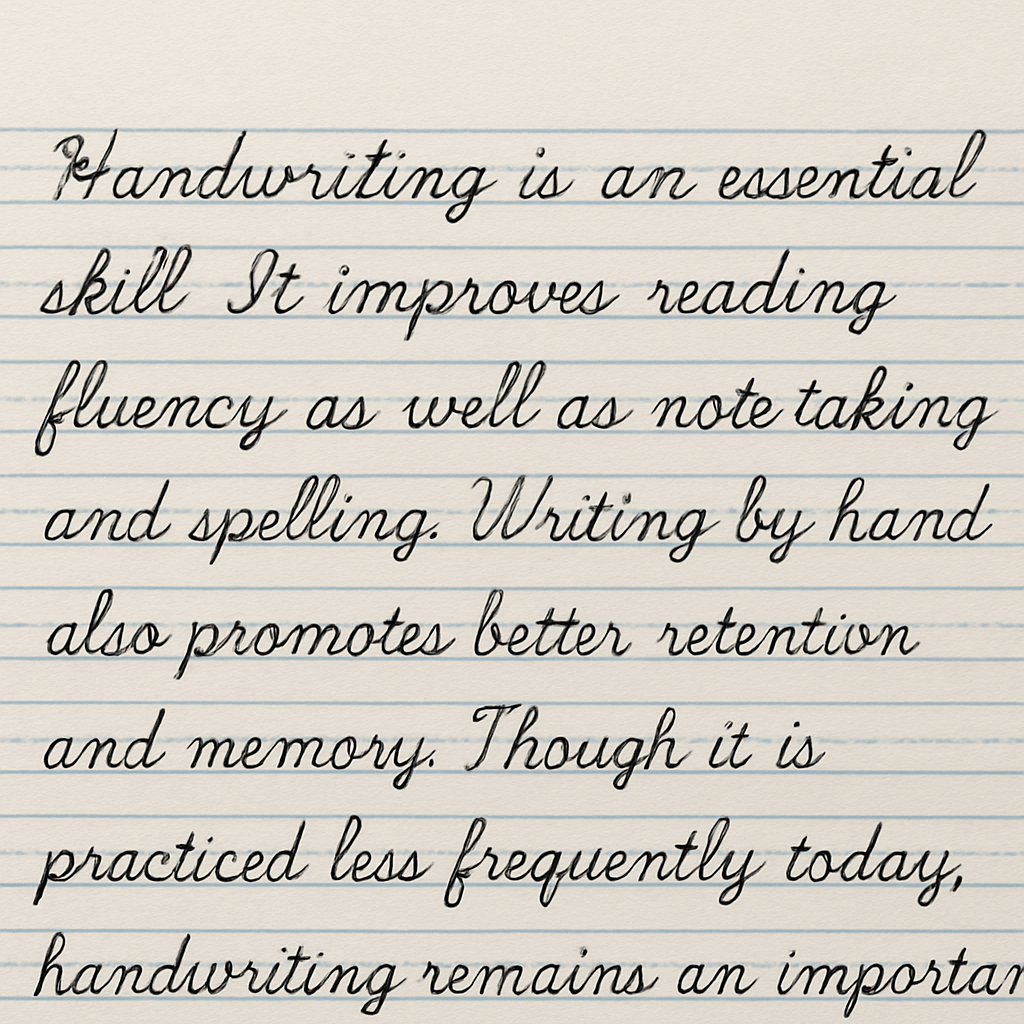 Handwriting is an essential
skill It improves reading
fluency as well as note taking
and spelling. Writing by hand
also promotes better retention
and memory. Though it is
practiced less frequently today,
handwriting remains an importan